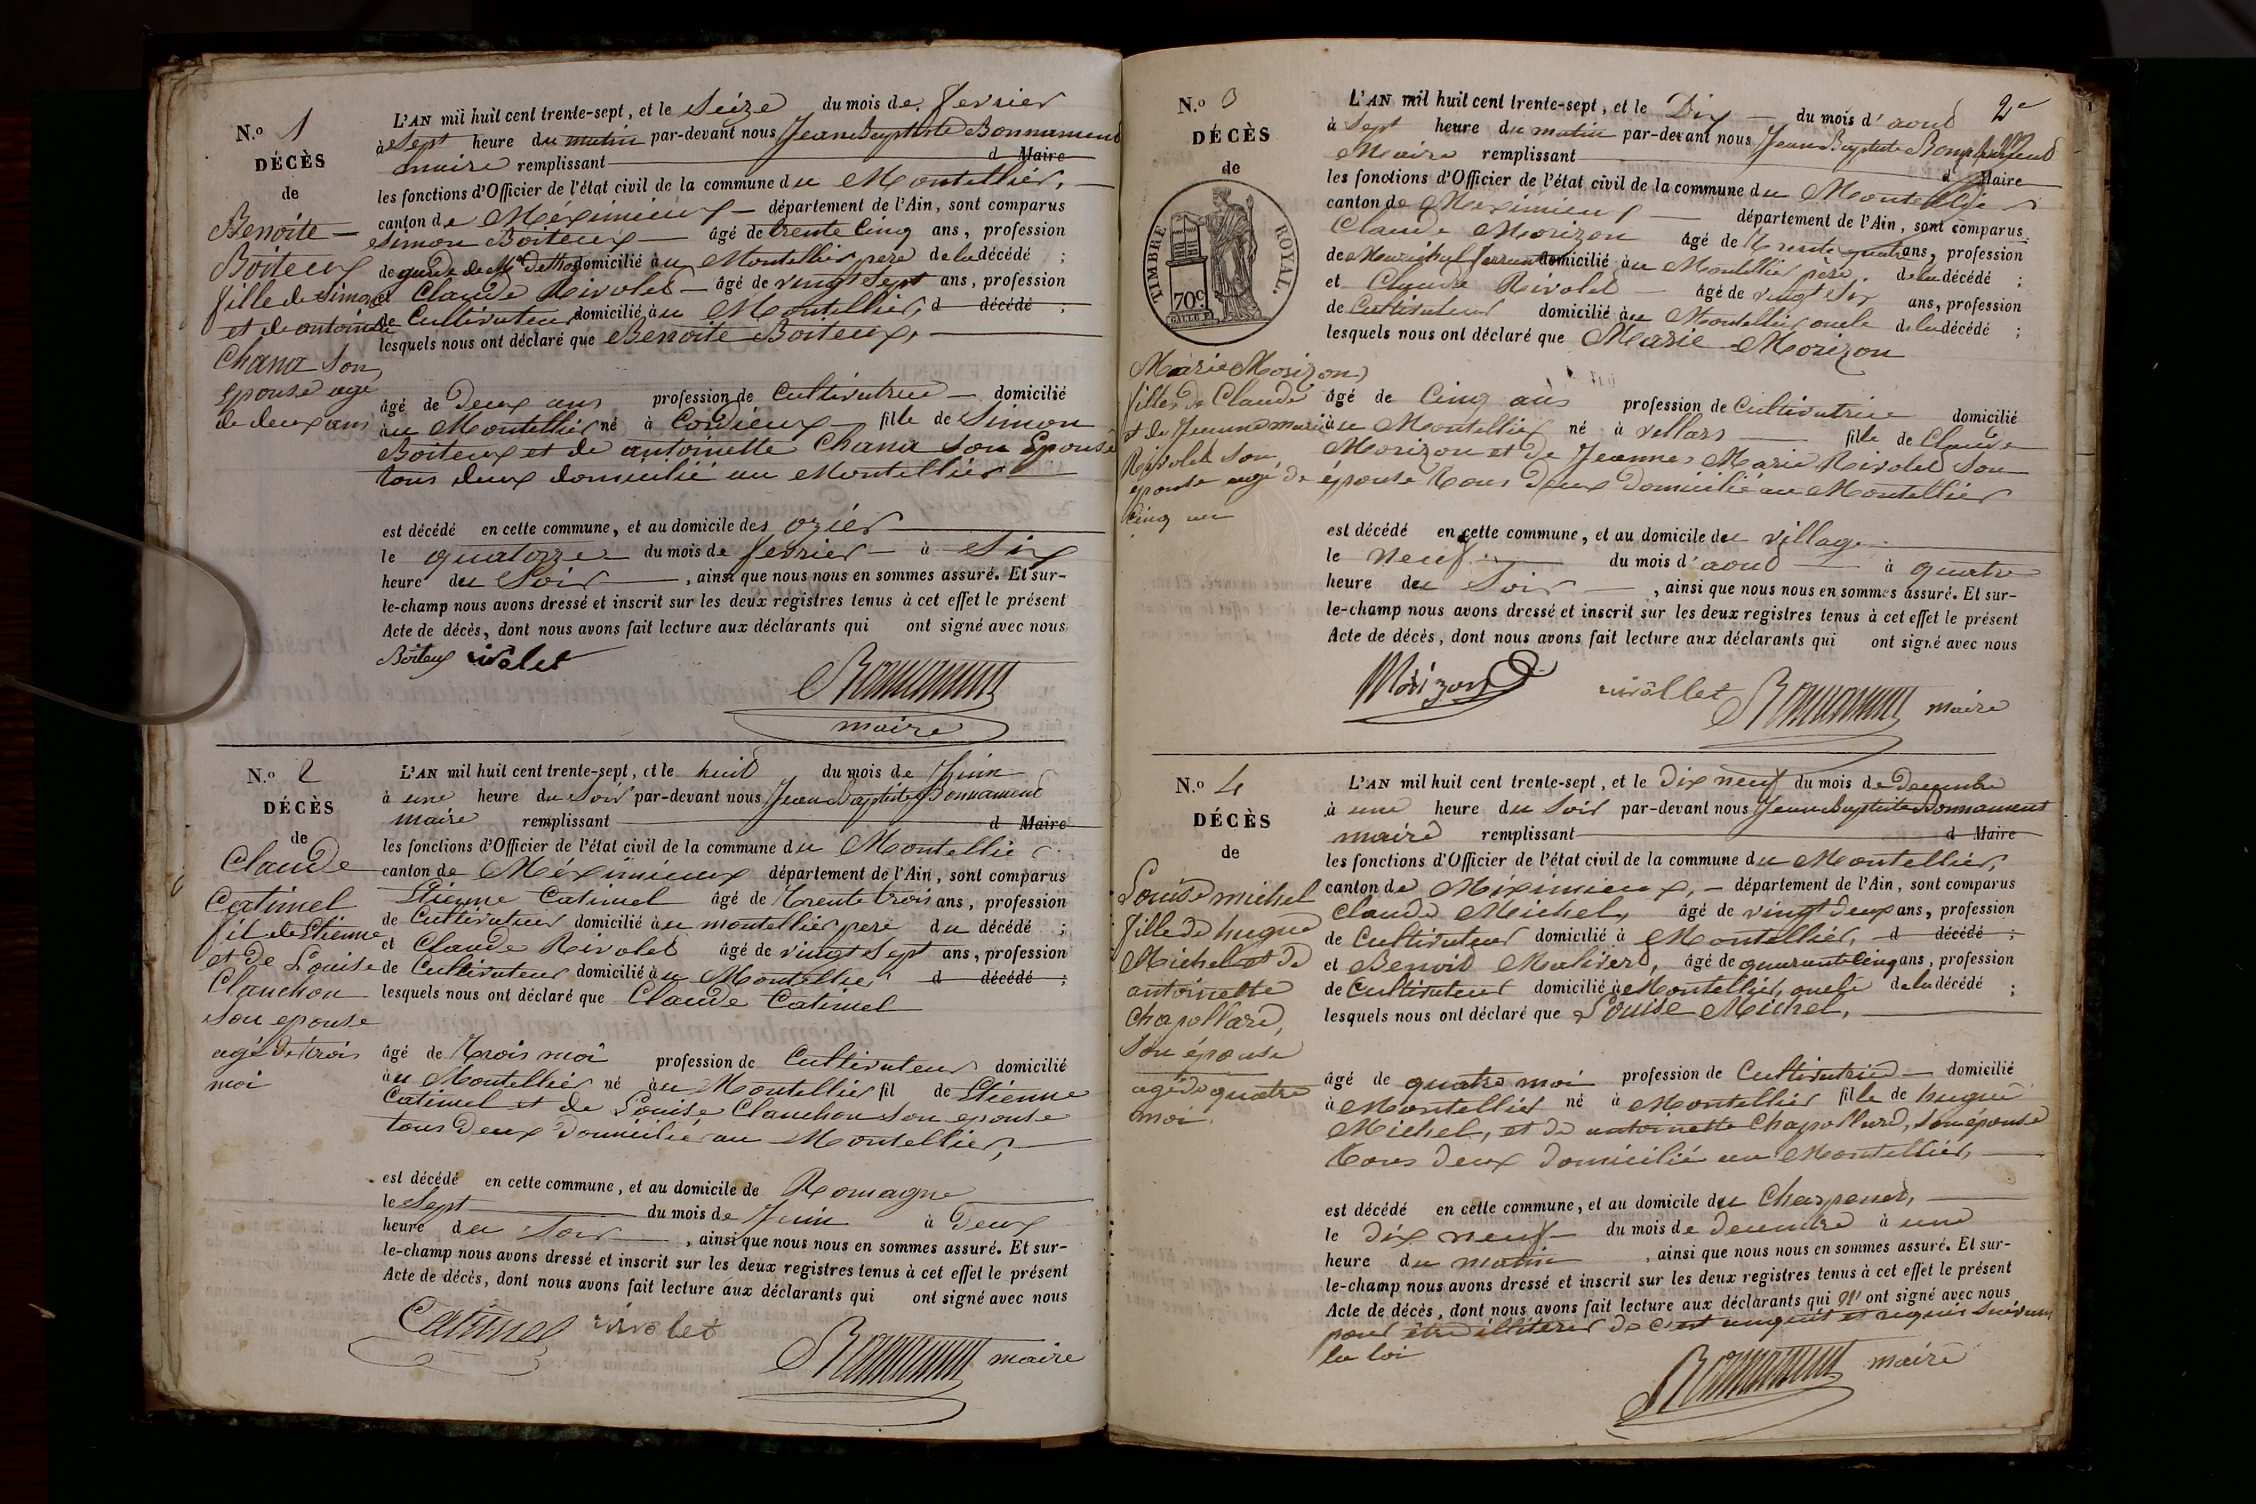 N.o 1
DÉCÈS
de
Benoite
Boiteux
fille de Simon
et de antoinette
Chana son
epouse agé
de deux ans
L'AN mil huit cent trente-sept, et le Seize du mois de fevrier
à Sept heure du matin par-devant nous Jean Baptiste Bonnament
maire remplissant d Maire
les fonctions d'Officier de l'état civil de la commune du Montellier,
canton de Méximieux département de l'Ain, sont comparus
Simon Boiteux âgé de trente Cinq ans, profession
de garde de Mr domicilié au Montellier pere de la décédé ;
et Claude Rivolet âgé de vingt Sept ans, profession
de Cultivateur domicilié au Montellier, d décédé ;
lesquels nous ont déclaré que Benoite Boiteux,
âgé de Deux ans profession de Cultivatrice domicilié
au Montellier né à Cordieux fille de Simon
Boiteux et de antoinette Chana son Epouse
tous deux domicilié au Montellier
est décédé en cette commune, et au domicile des ozier
le quatorze du mois de fevrier à Six
heure du Soir, ainsi que nous nous en sommes assuré. Et sur-
le-champ nous avons dressé et inscrit sur les deux registres tenus à cet effet le présent
Acte de décès, dont nous avons fait lecture aux déclarants qui ont signé avec nous
Boiteux rivolet
Bonnament
maire
N.o 2
DÉCÈS
de
Claude
Catimel
fil de Etienne
et de Louise
Clanchon
son epouse
agé de trois
moi
L'AN mil huit cent trente-sept, et le huit du mois de Juin
à une heure du Soir par-devant nous Jean Baptiste Bonnament
maire remplissant d Maire
les fonctions d'Officier de l'état civil de la commune du Montellier
canton de Méximieux département de l'Ain, sont comparus
Etienne Catimel âgé de Trente trois ans, profession
de Cultivateur domicilié au montellier pere du décédé ;
et Claude Rivolet âgé de vingt Sept ans, profession
de Cultivateur domicilié au Montellier d décédé ;
lesquels nous ont déclaré que Claude Catimel
âgé de Trois moi profession de Cultivateur domicilié
au Montellier né au Montellier fil de Etienne
Catimel et de Louise Clanchon son epouse
tous Deux Domicilié au Montellier,
est décédé en cette commune, et au domicile de Romagne
le Sept du mois de Juin à Deux
heure du Soir, ainsi que nous nous en sommes assuré. Et sur-
le-champ nous avons dressé et inscrit sur les deux registres tenus à cet effet le présent
Acte de décès, dont nous avons fait lecture aux déclarants qui ont signé avec nous
Catimel rivolet
Bonnament maire
2e
N.o 3
DÉCÈS
de
TIMBRE ROYAL.
70c
Marie Morizon
fille de Claude
et de Jeanne marie
Rivolet son
epouse agé de
Cinq an
L'AN mil huit cent trente-sept, et le Dix du mois d'aout
à Sept heure du matin par-devant nous Jean Baptiste Bonnament
Maire remplissant d Maire
les fonctions d'Officier de l'état civil de la commune du Montellier
canton de Meximieux département de l'Ain, sont comparus
Claude Morizon âgé de Trente quatre ans, profession
de Marechal ferrant domicilié au Montellier père, de la décédé ;
et Claude Rivolet âgé de vingt Six ans, profession
de Cultivateur domicilié au Montellier oncle de la décédé ;
lesquels nous ont déclaré que Marie Morizon
âgé de Cinq ans profession de Cultivatrice domicilié
au Montellier né à villars fille de Claude
Morizon et de Jeanne Marie Rivolet son
épouse tous Deux Domicilié au Montellier
est décédé en cette commune, et au domicile du village
le neuf du mois d'aout à quatre
heure du Soir, ainsi que nous nous en sommes assuré. Et sur-
le-champ nous avons dressé et inscrit sur les deux registres tenus à cet effet le présent
Acte de décès, dont nous avons fait lecture aux déclarants qui ont signé avec nous
Morizon rivollet Bonnament maire
N.o 4
DÉCÈS
de
Louise michel
fille de hugue
Michel et de
antoinette
Chapollard,
Son épouse
agé de quatre
moi.
L'AN mil huit cent trente-sept, et le Dix neuf du mois de Decembre
à une heure du Soir par-devant nous Jean Baptiste Bonnament
maire remplissant d Maire
les fonctions d'Officier de l'état civil de la commune du Montellier,
canton de Méximieux, département de l'Ain, sont comparus
Claude Michel, âgé de vingt deux ans, profession
de Cultivateur domicilié à Montellier, d décédé ;
et Benoit Malivert, âgé de quarante Cinq ans, profession
de Cultivateur domicilié à Montellier, oncle de la décédé ;
lesquels nous ont déclaré que Louise Michel,
âgé de quatre moi profession de Cultivatrice domicilié
à Montellier né à Montellier fille de hugue
Michel, et de antoinette Chapollard, Son épouse
tous deux domicilié au Montellier,
est décédé en cette commune, et au domicile du Charpenet,
le Dix neuf du mois de decembre à une
heure du matin, ainsi que nous nous en sommes assuré. Et sur-
le-champ nous avons dressé et inscrit sur les deux registres tenus à cet effet le présent
Acte de décès, dont nous avons fait lecture aux déclarants qui n' ont signé avec nous
pour être illiterer de ce et requis Suivant
la loi
Bonnament maire